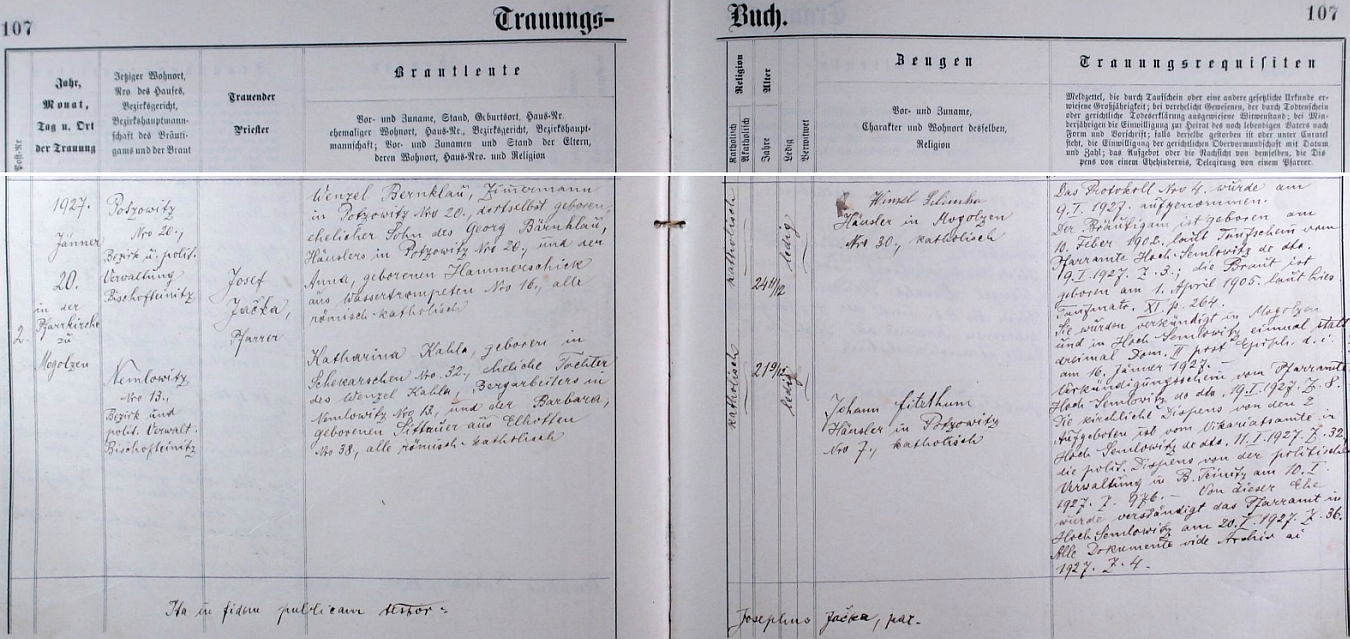 107
Trauungs-
Buch.
107
Post-Nr
Jahr,
Monat,
Tag u. Ort
der Trauung
Jetziger Wohnort,
Nro. des Hauses,
Bezirksgericht,
Bezirkshauptmann-
schaft des Bräuti-
gams und der Braut
Trauender
Priester
Brautleute
Vor- und Zuname, Stand, Geburtsort, Haus-Nr.
ehemaliger Wohnort, Haus-Nr., Bezirksgericht, Bezirkshaupt-
mannschaft; Vor- und Zunamen und Stand der Eltern,
deren Wohnort, Haus-Nro. und Religion
Religion
Katholisch
Akatholisch
Alter
Jahre
Ledig
Verwitwet
Zeugen
Vor- und Zuname,
Charakter und Wohnort desselben,
Religion
Trauungsrequisiten
Meldzettel, die durch Taufschein oder eine andere gesetzliche Urkunde er-
wiesene Großjährigkeit; bei verehelicht Gewesenen, der durch Todtenschein
oder gerichtliche Todeserklärung ausgewiesene Witwenstand; bei Min-
derjährigen die Einwilligung zu Heirat des noch lebendigen Vaters nach
Form und Vorschrift; falls derselbe gestorben ist oder unter Curatel
steht, die Einwilligung der gerichtlichen Obervormundschaft mit Datum
und Zahl; das Aufgebot oder die Nachsicht von demselben, die Dis-
pens von einem Ehehindernis, Delegirung von einem Pfarrer.
2.
1927.
Jänner
20.
in der
Pfarrkirche
zu
Mogolzen
Potzowitz
Nro 20.,
Bezirk u. polit.
Verwaltung
Bischofteinitz
Nemlowitz
Nro 13.,
Bezirk und
polit. Verwalt.
Bischofteinitz
Josef
Jačka,
Pfarrer
Wenzel Bernklau, Zimmermann
in Potzowitz Nro 20., dortselbst geboren,
ehelicher Sohn des Georg Bärnklau,
Häuslers in Potzowitz Nro 20., und der
Anna, geborenen Hammerschick
aus Wassertrompeten Nro 16., alle
römisch-katholisch
Katharina Kahla, geboren in
Schekarschen Nro. 32., eheliche Tochter
des Wenzel Kahla, Bergarbeiters in
Nemlowitz Nro 13., und der Barbara,
geborenen Sittauer aus Elhotten
Nro 38., alle römisch-katholisch
katholisch
24 11/12
ledig
katholisch
21 9/12
ledig
Häusler in Mogolzen
Nro 30., katholisch
Johann Eitelhum
Häusler in Potzowitz
Nro 7., katholisch
Das Protokoll Nro 4. wurde am
9. I. 1927. aufgenommen.
Der Bräutigam ist geboren am
10. Feber 1902. laut Taufschein vom
Pfarramte Hoch-Semlowitz de dto.
9. I. 1927. Z. 3.; die Braut ist
geboren am 1. April 1905. laut hies.
Taufmatr. XI p. 264.
Sie wurden verkündigt in Mogolzen
und in Hoch-Semlowitz einmal statt
dreimal Dom. II post Epiph. d. i.
am 16. Jänner 1927.
Verkündigungsschein vom Pfarramte
Hoch-Semlowitz de dto. 19. I. 1927. Z. 8.
Die kirchliche Dispens von den 2
Aufgeboten ist vom Vikariatsamte in
Hoch Semlowitz de dto. 11. I. 1927. Z. 32.
die polit. Dispens von der politischen
Verwaltung in B. Teinitz am 10. I.
1927. Z. 976. – Von dieser Ehe
wurde verständigt das Pfarramt in
Hoch Semlowitz am 20. I. 1927. Z. 36.
Alle Dokumente vide Archiv ai
1927. Z. 4.
Ita in fidem publicam testor:
Josephus Jačka, par.